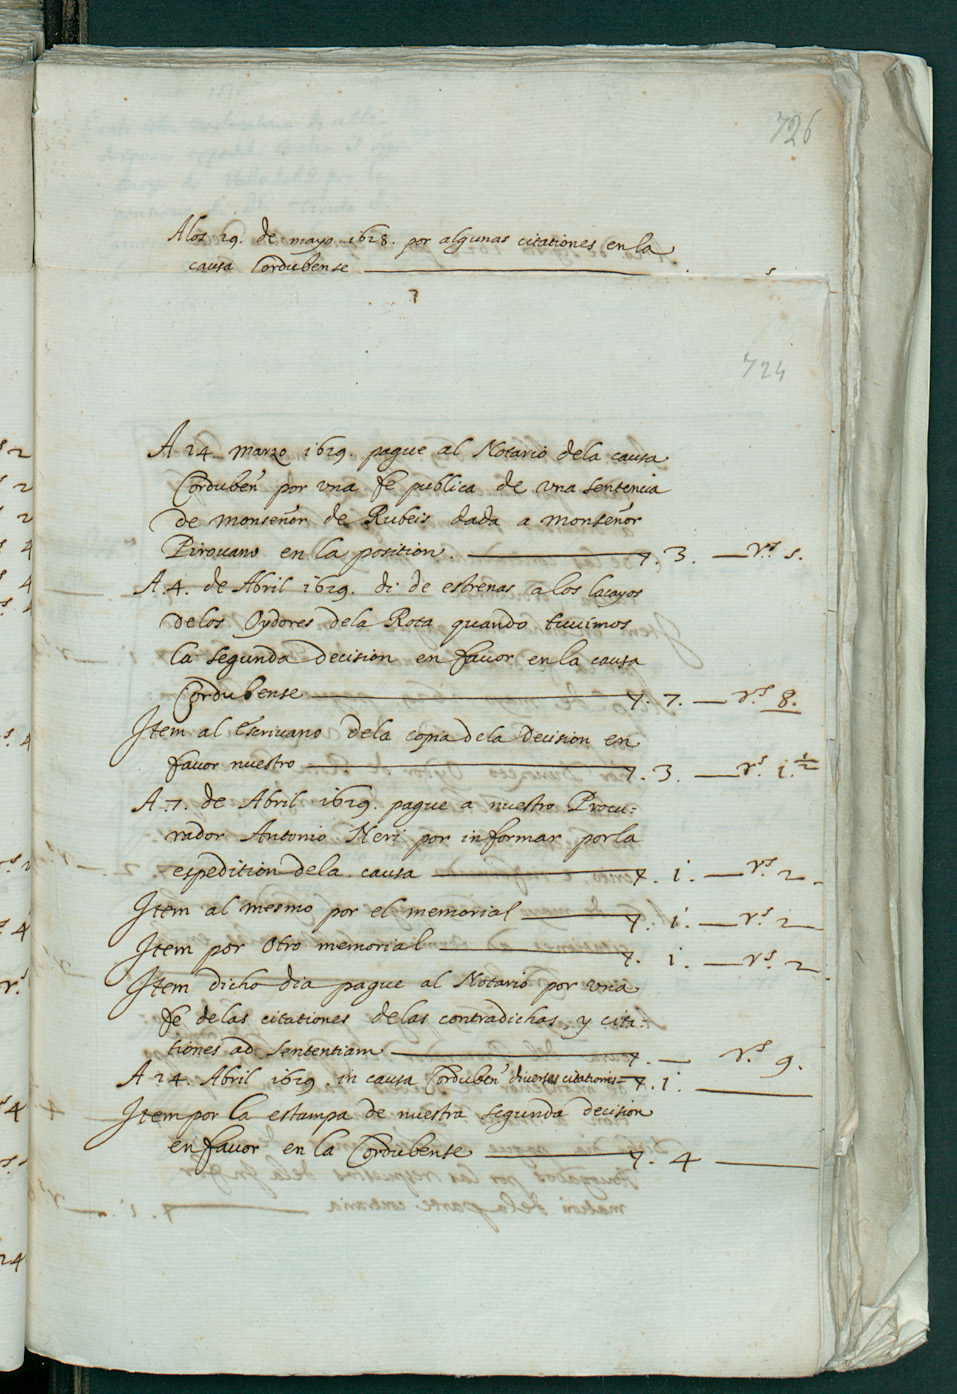 726
A los 29. de mayo 1628. por algunas citationes en la
causa Cordubense
724
A 24. Marzo 1629. pague al Notario dela causa
Corduben̄ por vna fe publica de vna sentencia
de monseñor de Rubeis dada a monseñor
Pirouano en la position. 7. 3. — rs s.
A .4. de Abril 1629. di de estrenas a los lacayos
delos Oydores dela Rota quando tuuimos
la segunda decision en fauor en la causa
Cordubense 7. 7. — rs 8.
Item al Escriuano dela copia dela decision en
fauor nuestro 7. 3. — rs. i. ½
A .7. de Abril 1629. pague a nuestro Procu:
rador Antonio Neri por informar por la
espedition dela causa 7. i. — rs. 2.
Item al mesmo por el memorial 7. i. — rs. 2
Item por Otro memorial 7. i. — rs. 2.
Item dicho dia pague al Notario por vna
fe de las citationes de las contradichas, y cita:
tiones ad sententiam 7. — rs. 9.
A 24. Abril 1629. in causa Corduben̄ diuerses citationes 7. i.
Item por la estampa de nuestra segunda decision
en fauor en la Cordubense 7. 4